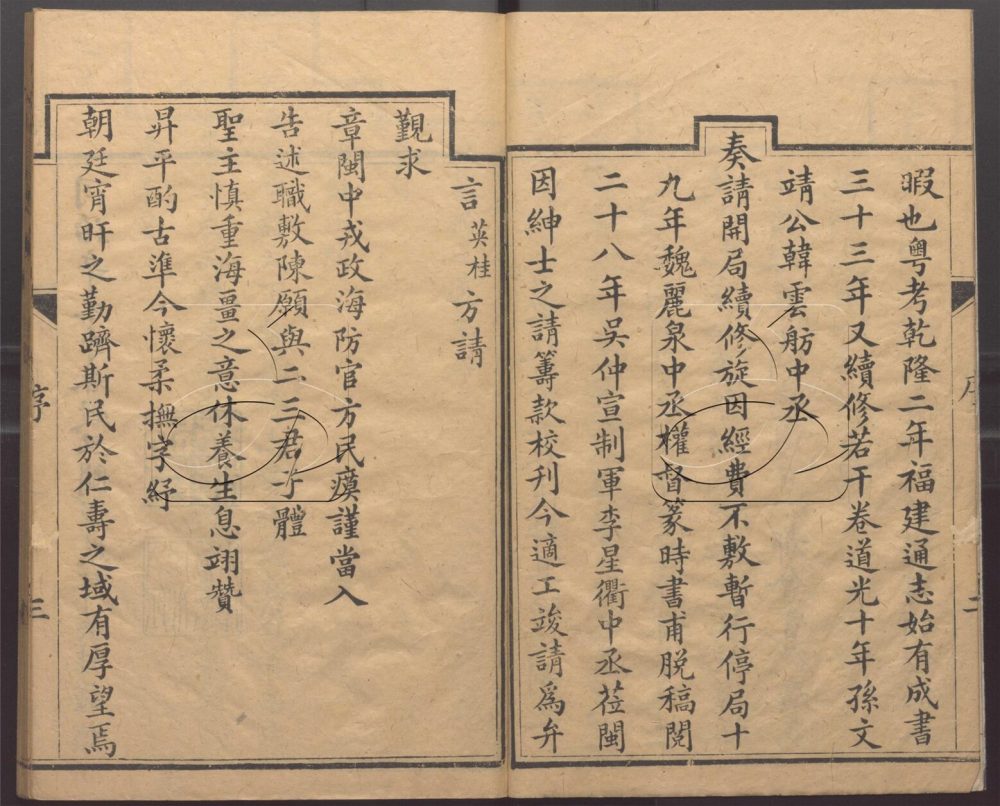 暇也粵考乾隆二年福建通志始有成書
三十三年又續修若干卷道光十年孫文
靖公韓雲舫中丞
奏請開局續修旋因經費不敷暫行停局十
九年魏麗泉中丞權督篆時書甫脫稿閱
二十八年吳仲宣制軍李星衢中丞莅閩
因紳士之請籌款校刊今適工竣請爲弁
言英桂方請
覲求
章閩中戎政海防官方民瘼謹當入
告述職敷陳願與二三君子體
聖主慎重海畺之意休養生息翊贊
昇平酌古準今懷柔撫字紓
朝廷宵旰之勤躋斯民於仁壽之域有厚望焉
序
三